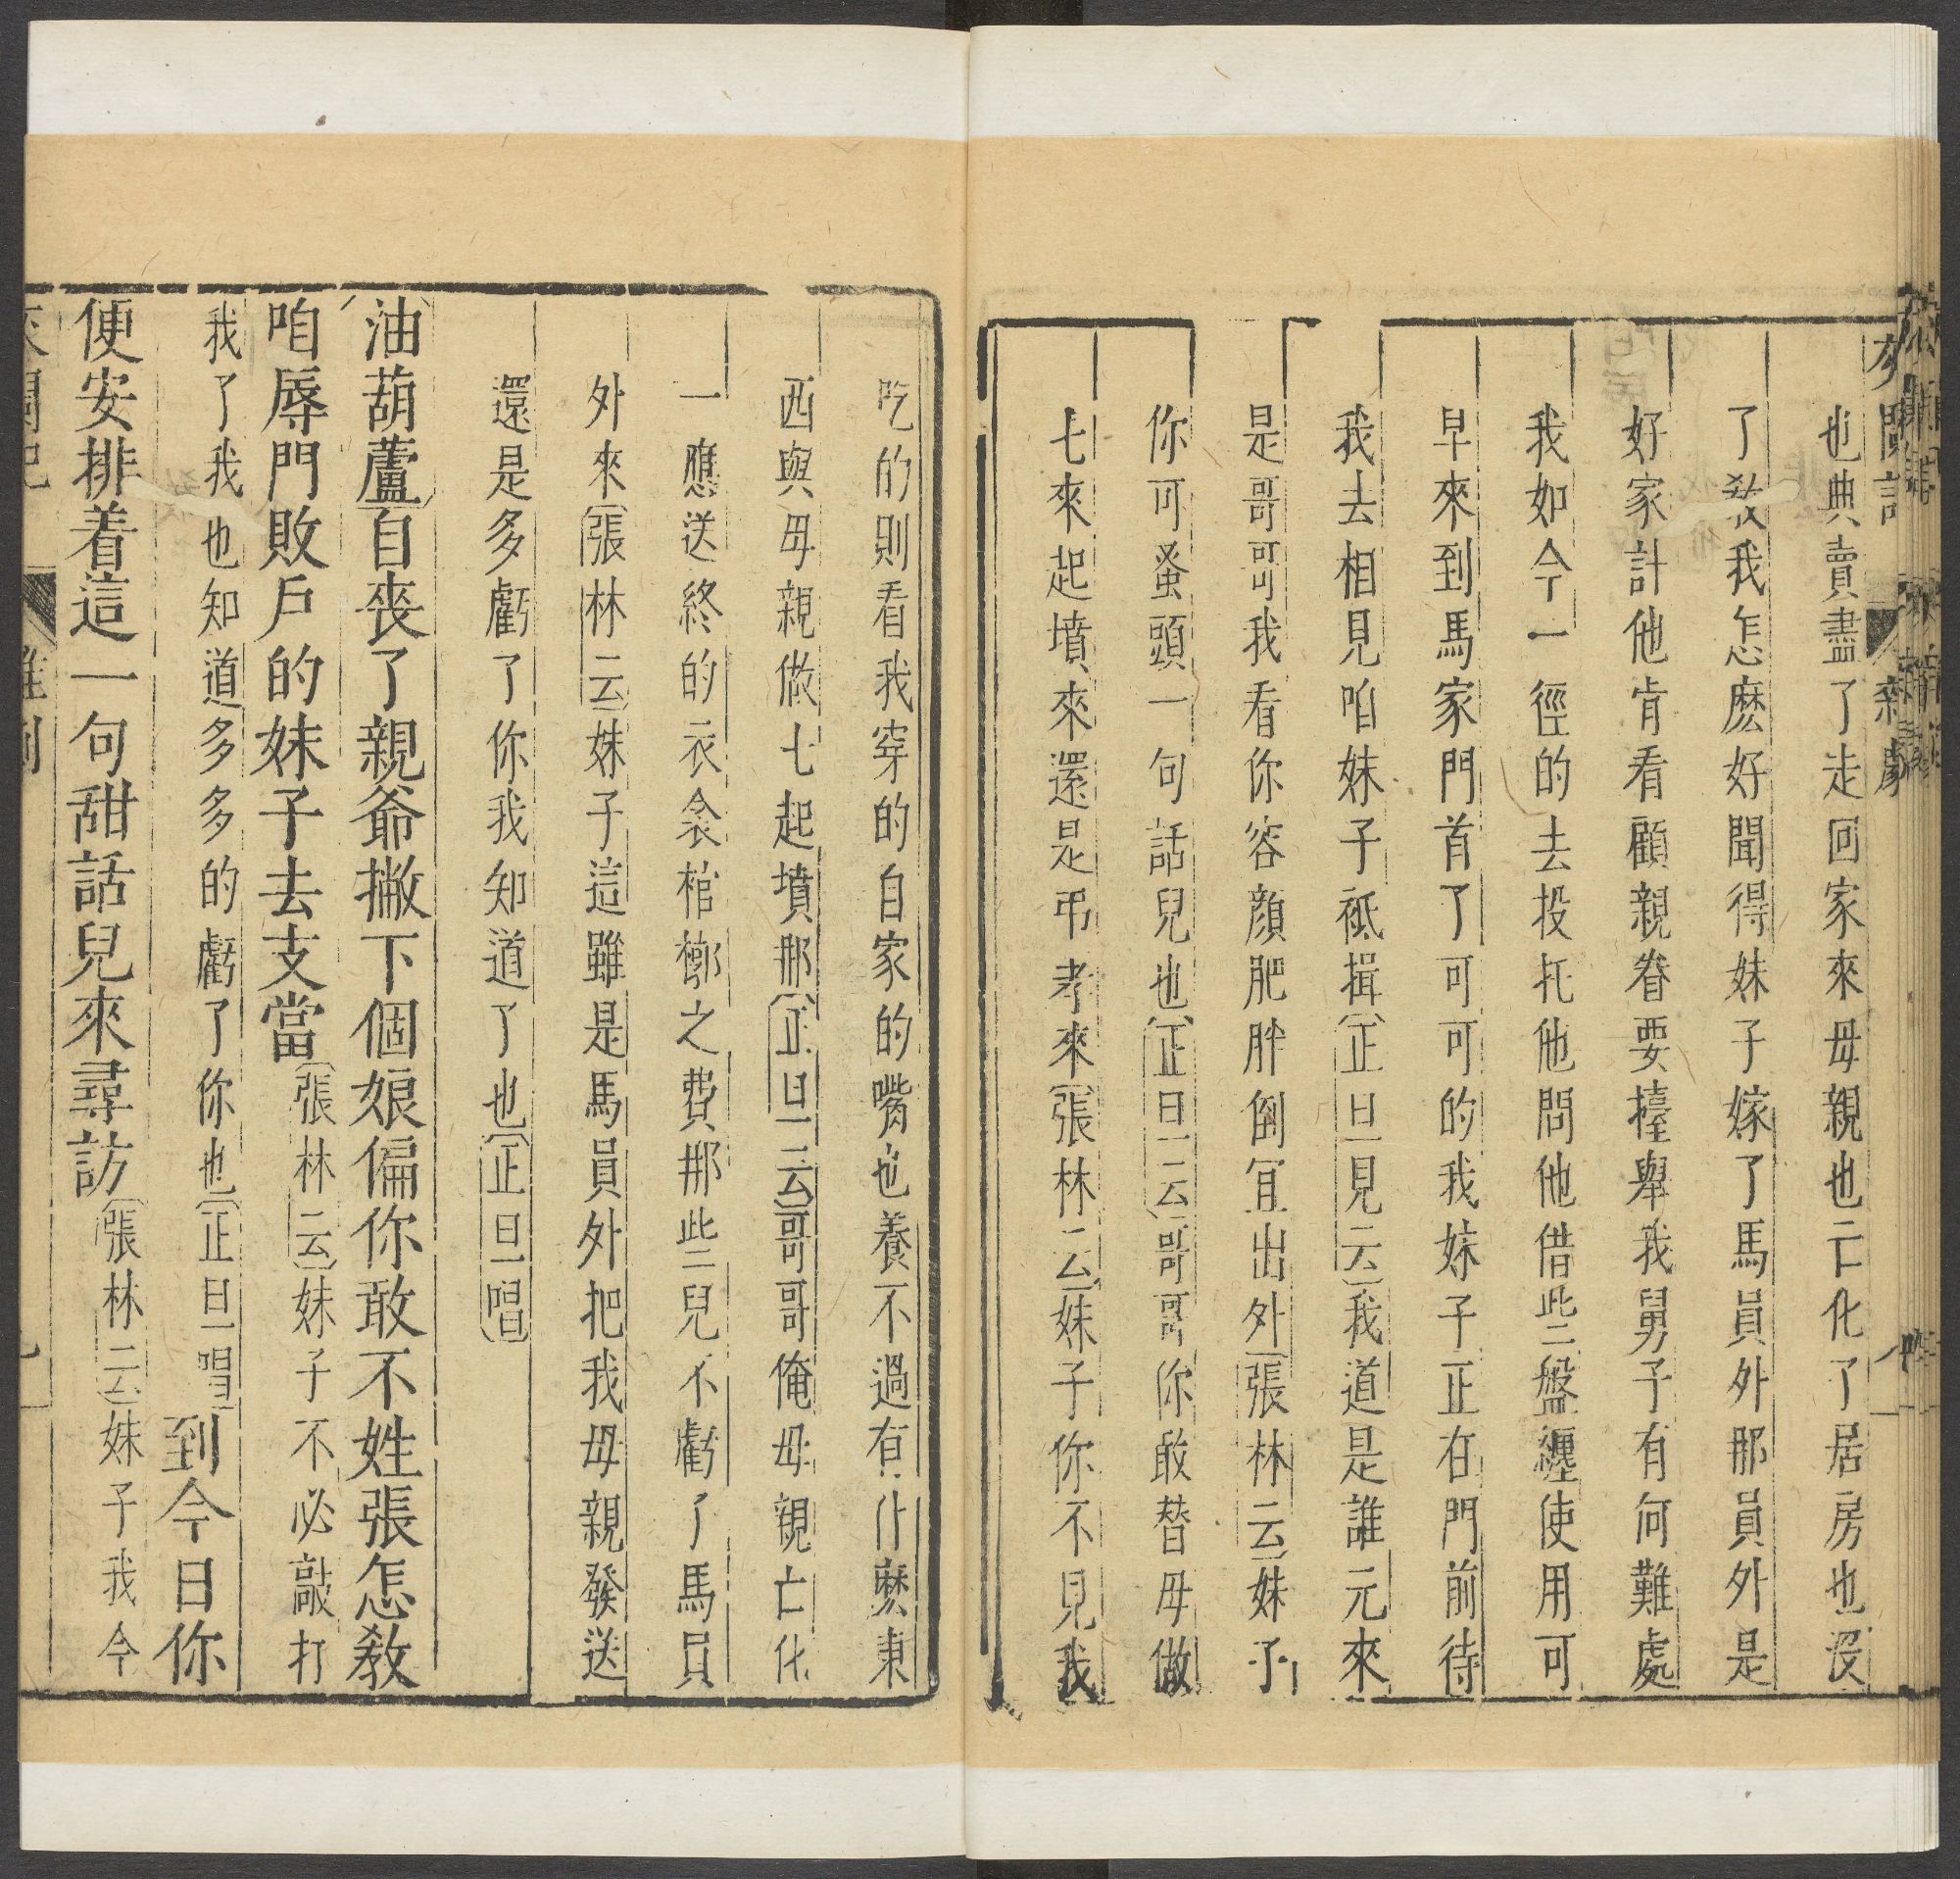 也典賣盡了走回家來母親也亡化了居房也沒
了教我怎麽好聞得妹子嫁了馬員外那員外是
好家計他肯看顧親眷要擡舉我舅子有何難處
我如今一徑的去投托他問他借些盤纏使用可
早來到馬家門首了可可的我妹子正在門前待
我去相見咱妹子祗揖〔正旦見云〕我道是誰元來
是哥哥我看你容顏肥胖倒宜出外〔張林云〕妹子
你可蚤頭一句話兒也〔正旦云〕哥哥你敢替母做
七來起墳來還是弔孝來〔張林云〕妹子你不見我
吃的則看我穿的自家的嘴也養不過有什麽東
西與母親做七起墳那〔正旦云〕哥哥俺母親亡化
一應送終的衣衾棺槨之費那些兒不虧了馬員
外來〔張林云〕妹子這雖是馬員外把我母親發送
還是多虧了你我知道了也〔正旦唱〕
油葫蘆自喪了親爺撇下個娘偏你敢不姓張怎教
咱辱門敗戶的妹子去支當〔張林云〕妹子不必敲打
我了我也知道多多的虧了你也〔正旦唱〕到今日你
便安排着這一句甜話兒來尋訪〔張林云〕妹子我今